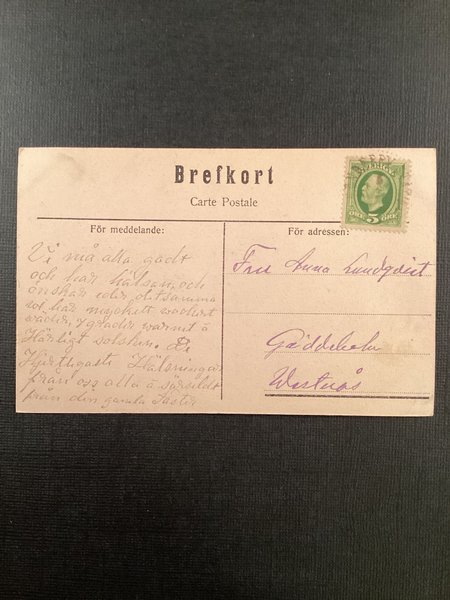 Brefkort
Carte Postale
SVERIGE
ÖRE 5 ÖRE
För meddelande:
För adressen:
Vi må alla godt
och har hälsan, och
önskar eder detsamma
vi har majhett vackert
väder, grader varmt å
Härligt solsken.
Hjertligaste Hälsningar
från oss alla å särskildt
från din gamla Faster
Fru Anna Lundqvist
Gäddeholm
Westerås